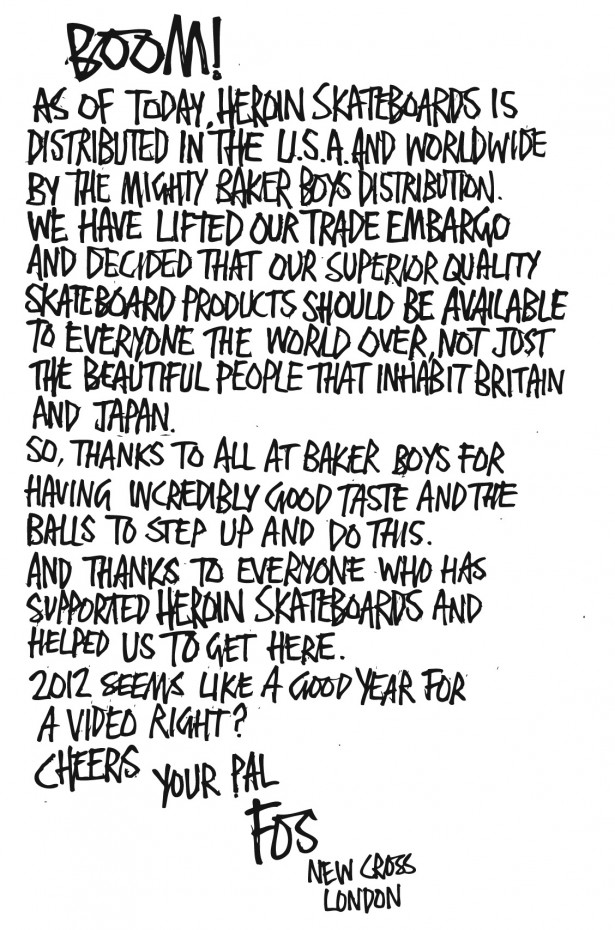 BOOM!
AS OF TODAY, HEROIN SKATEBOARDS IS
DISTRIBUTED IN THE U.S.A. AND WORLDWIDE
BY THE MIGHTY BAKER BOYS DISTRIBUTION.
WE HAVE LIFTED OUR TRADE EMBARGO
AND DECIDED THAT OUR SUPERIOR QUALITY
SKATEBOARD PRODUCTS SHOULD BE AVAILABLE
TO EVERYONE THE WORLD OVER, NOT JUST
THE BEAUTIFUL PEOPLE THAT INHABIT BRITAIN
AND JAPAN.
SO, THANKS TO ALL AT BAKER BOYS FOR
HAVING INCREDIBLY GOOD TASTE AND THE
BALLS TO STEP UP AND DO THIS.
AND THANKS TO EVERYONE WHO HAS
SUPPORTED HEROIN SKATEBOARDS AND
HELPED US TO GET HERE.
2012 SEEMS LIKE A GOOD YEAR FOR
A VIDEO RIGHT?
CHEERS YOUR PAL
FOS
NEW CROSS
LONDON